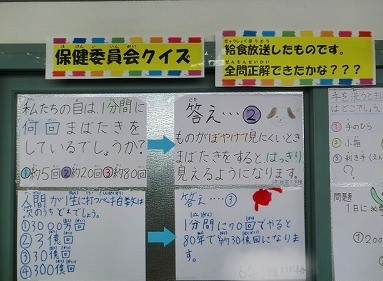 保健委員会クイズ
給食放送したものです。
全問正解できたかな？？？
私たちの目は、1分間に
何回まばたきを
しているでしょうか?
①約5回②約20回③約80回
答え…②
ものがぼやけて見にくいとき
まばたきをすると、はっきり
見えるようになります。
人間が1生に打つ心拍数は
次のうちどれでしょう。
①3000万回
②3億回
③30億回
④300億回
答え…③
1分間に70回でやると
80年で約30億回になりま
す。
手を洗うとき
はどこでしょう
①手のひら
②小指
③利き手
?
問題
1日に
①200